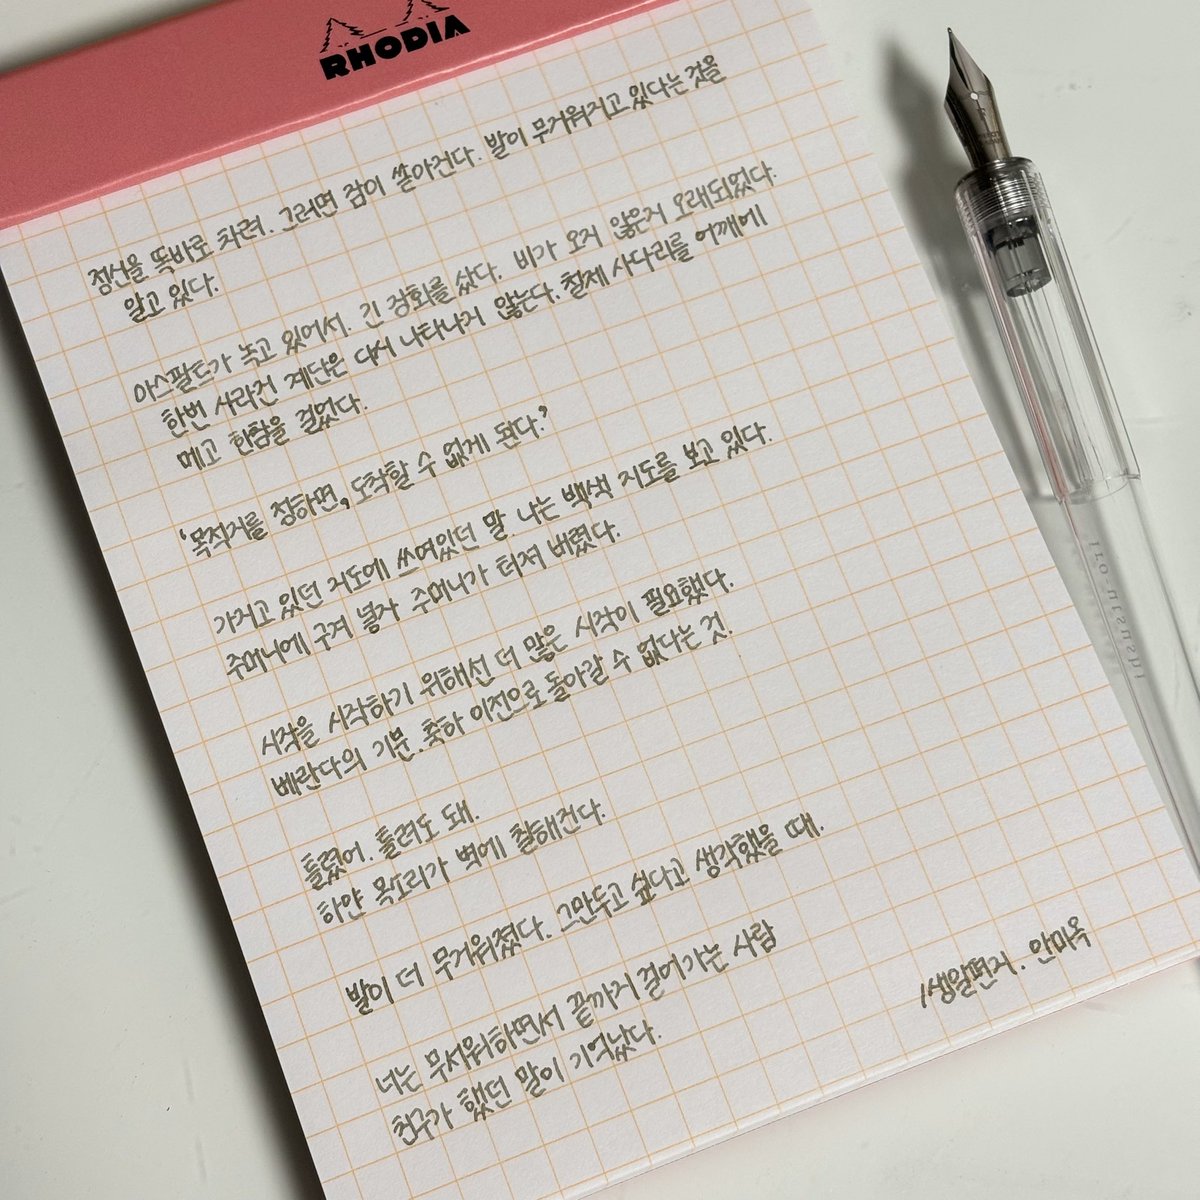 RHODIA
정신을 똑바로 차려. 그러면 잠이 쏟아진다. 발이 무거워지고 있다는 것을
알고 있다.
아스팔트가 녹고 있어서. 긴 장화를 샀다. 비가 오지 않은지 오래되었다.
한번 사라진 계단은 다시 나타나지 않는다. 철제 사다리를 어깨에
메고 한참을 걸었다.
'목적지를 정하면, 도착할 수 없게 된다.'
가지고 있던 지도에 쓰여있던 말. 나는 백색 지도를 보고 있다.
주머니에 구겨 넣자 주머니가 터져 버렸다.
시작을 시작하기 위해선 더 많은 시작이 필요했다.
베란다의 기분. 축하 이전으로 돌아갈 수 없다는 것.
틀렸어. 틀려도 돼.
하얀 목소리가 벽에 칠해진다.
발이 더 무거워졌다. 그만두고 싶다고 생각했을 때.
너는 무서워하면서 끝까지 걸어가는 사람
친구가 했던 말이 기억났다.
/생일편지. 안미옥